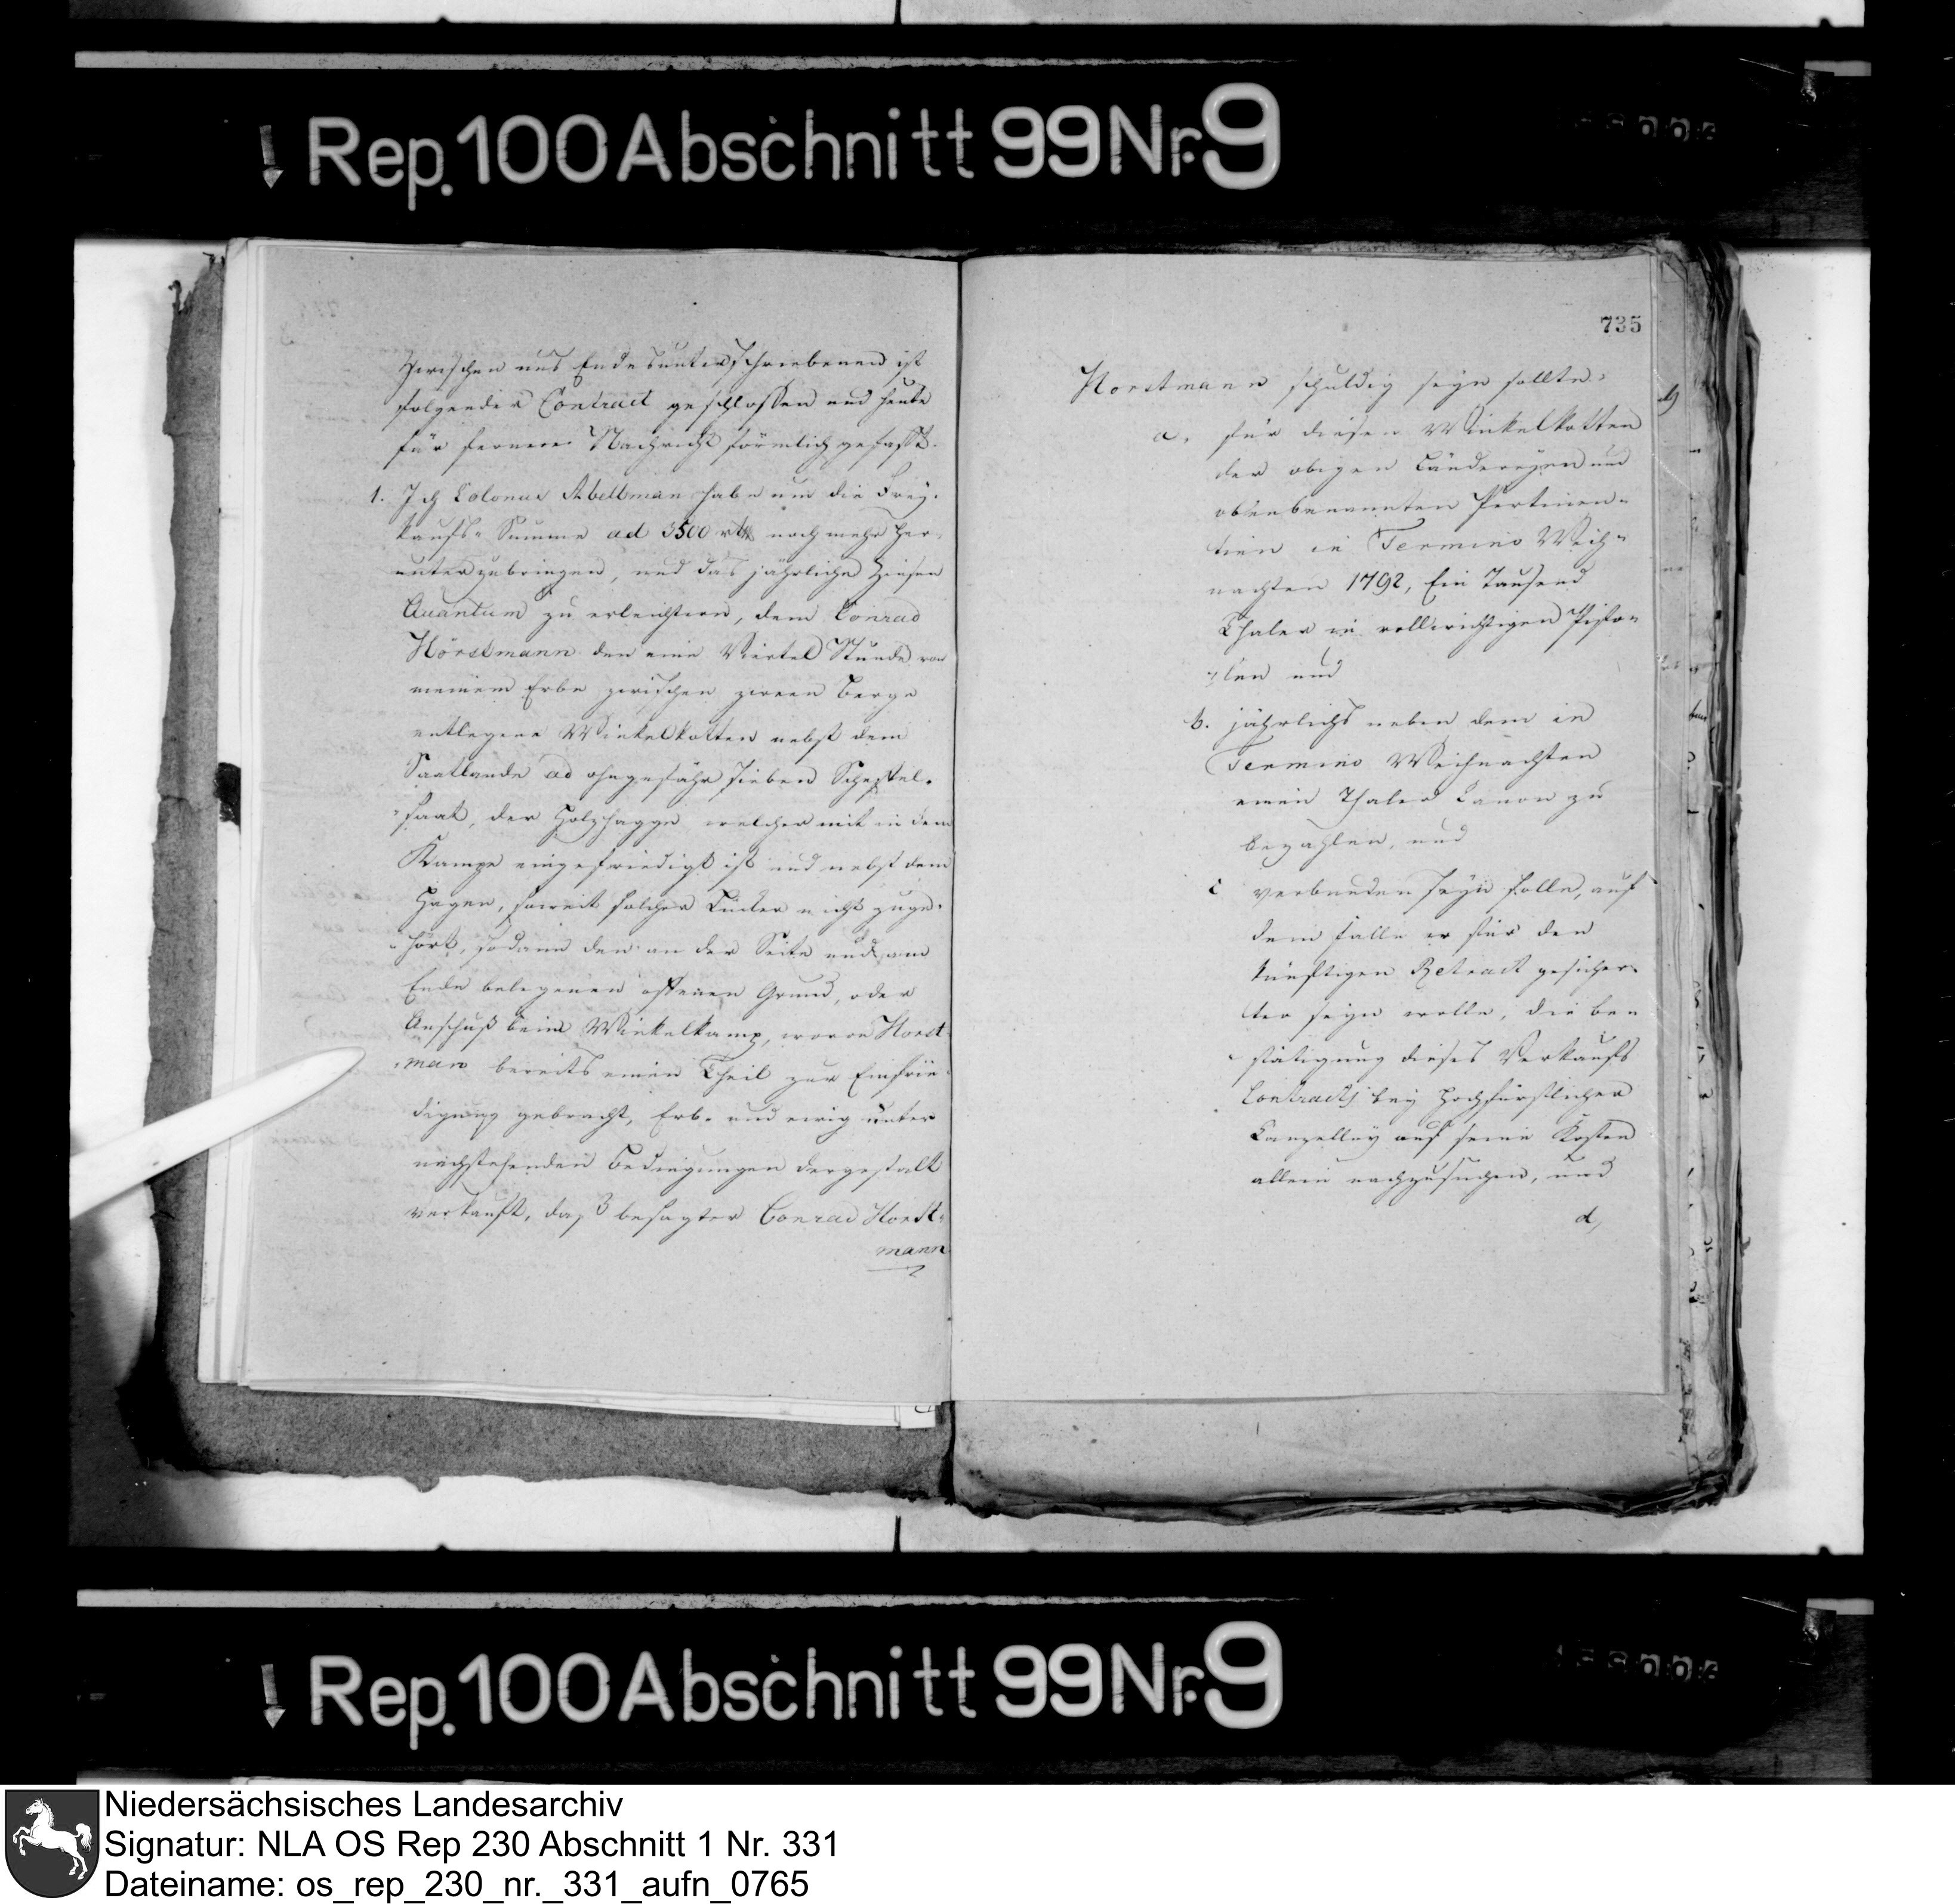 Rep. 100 Abschnitt 99 Nr. 9
Zwischen uns Endesunterschriebenen ist
folgender Contract geschlossen und heute
für fernere Nachricht förmlich gefasst.
1. Ich Colonus Abellman habe um die Frey-
kaufs-Summe ad 3500 rthl noch mehr her-
unterzubringen, und das jährliche Zinsen
Quantum zu erleichtern, dem Conrad
Horstmann den eine Viertel Stunde von
meinem Erbe zwischen zween Berge
entlegene Winkelkotten nebst dem
Saatlande ad ohngefähr sieben Scheffel-
saat, der Holzhagge welcher mit in dem
Kampe eingefriedigt ist und nebst dem
Hagen, soweit solcher nicht zuge-
hört, sodann den an der Seite und am
Ende belegenen offenen Grund, oder
Anschuß beim Winkelkamp, wovon Horst-
man bereits einen Theil zur Einfrie-
digung gebracht, Erb- und ewig unter
nachstehenden Bedingungen dergestalt
verkauft, daß besagter Conrad Horst-
mann
735
Horstmann schuldig seyn sollte.
a. für diesen Winkelkotten
der obigen Ländereyen und
obenbenannten Pertinen-
tien in Termino Weih-
nachten 1792, Ein Tausend
Thaler in vollwichtigen Pisto-
len und
b. jährlichs neben dem in
Termino Weihnachten
einen Thaler Canon zu
bezahlen, und
c verbunden seyn solle, auf
dem Falle er für den
künftigen Retract gesicher-
ter seyn wolle, die be-
stätigung dieses Verkaufs
Contracts bey Hochfürstlicher
Canzelley auf seine Kosten
allein nachzusuchen, und
d,
Rep. 100 Abschnitt 99 Nr. 9
Niedersächsisches Landesarchiv
Signatur: NLA OS Rep 230 Abschnitt 1 Nr. 331
Dateiname: os_rep_230_nr._331_aufn_0765